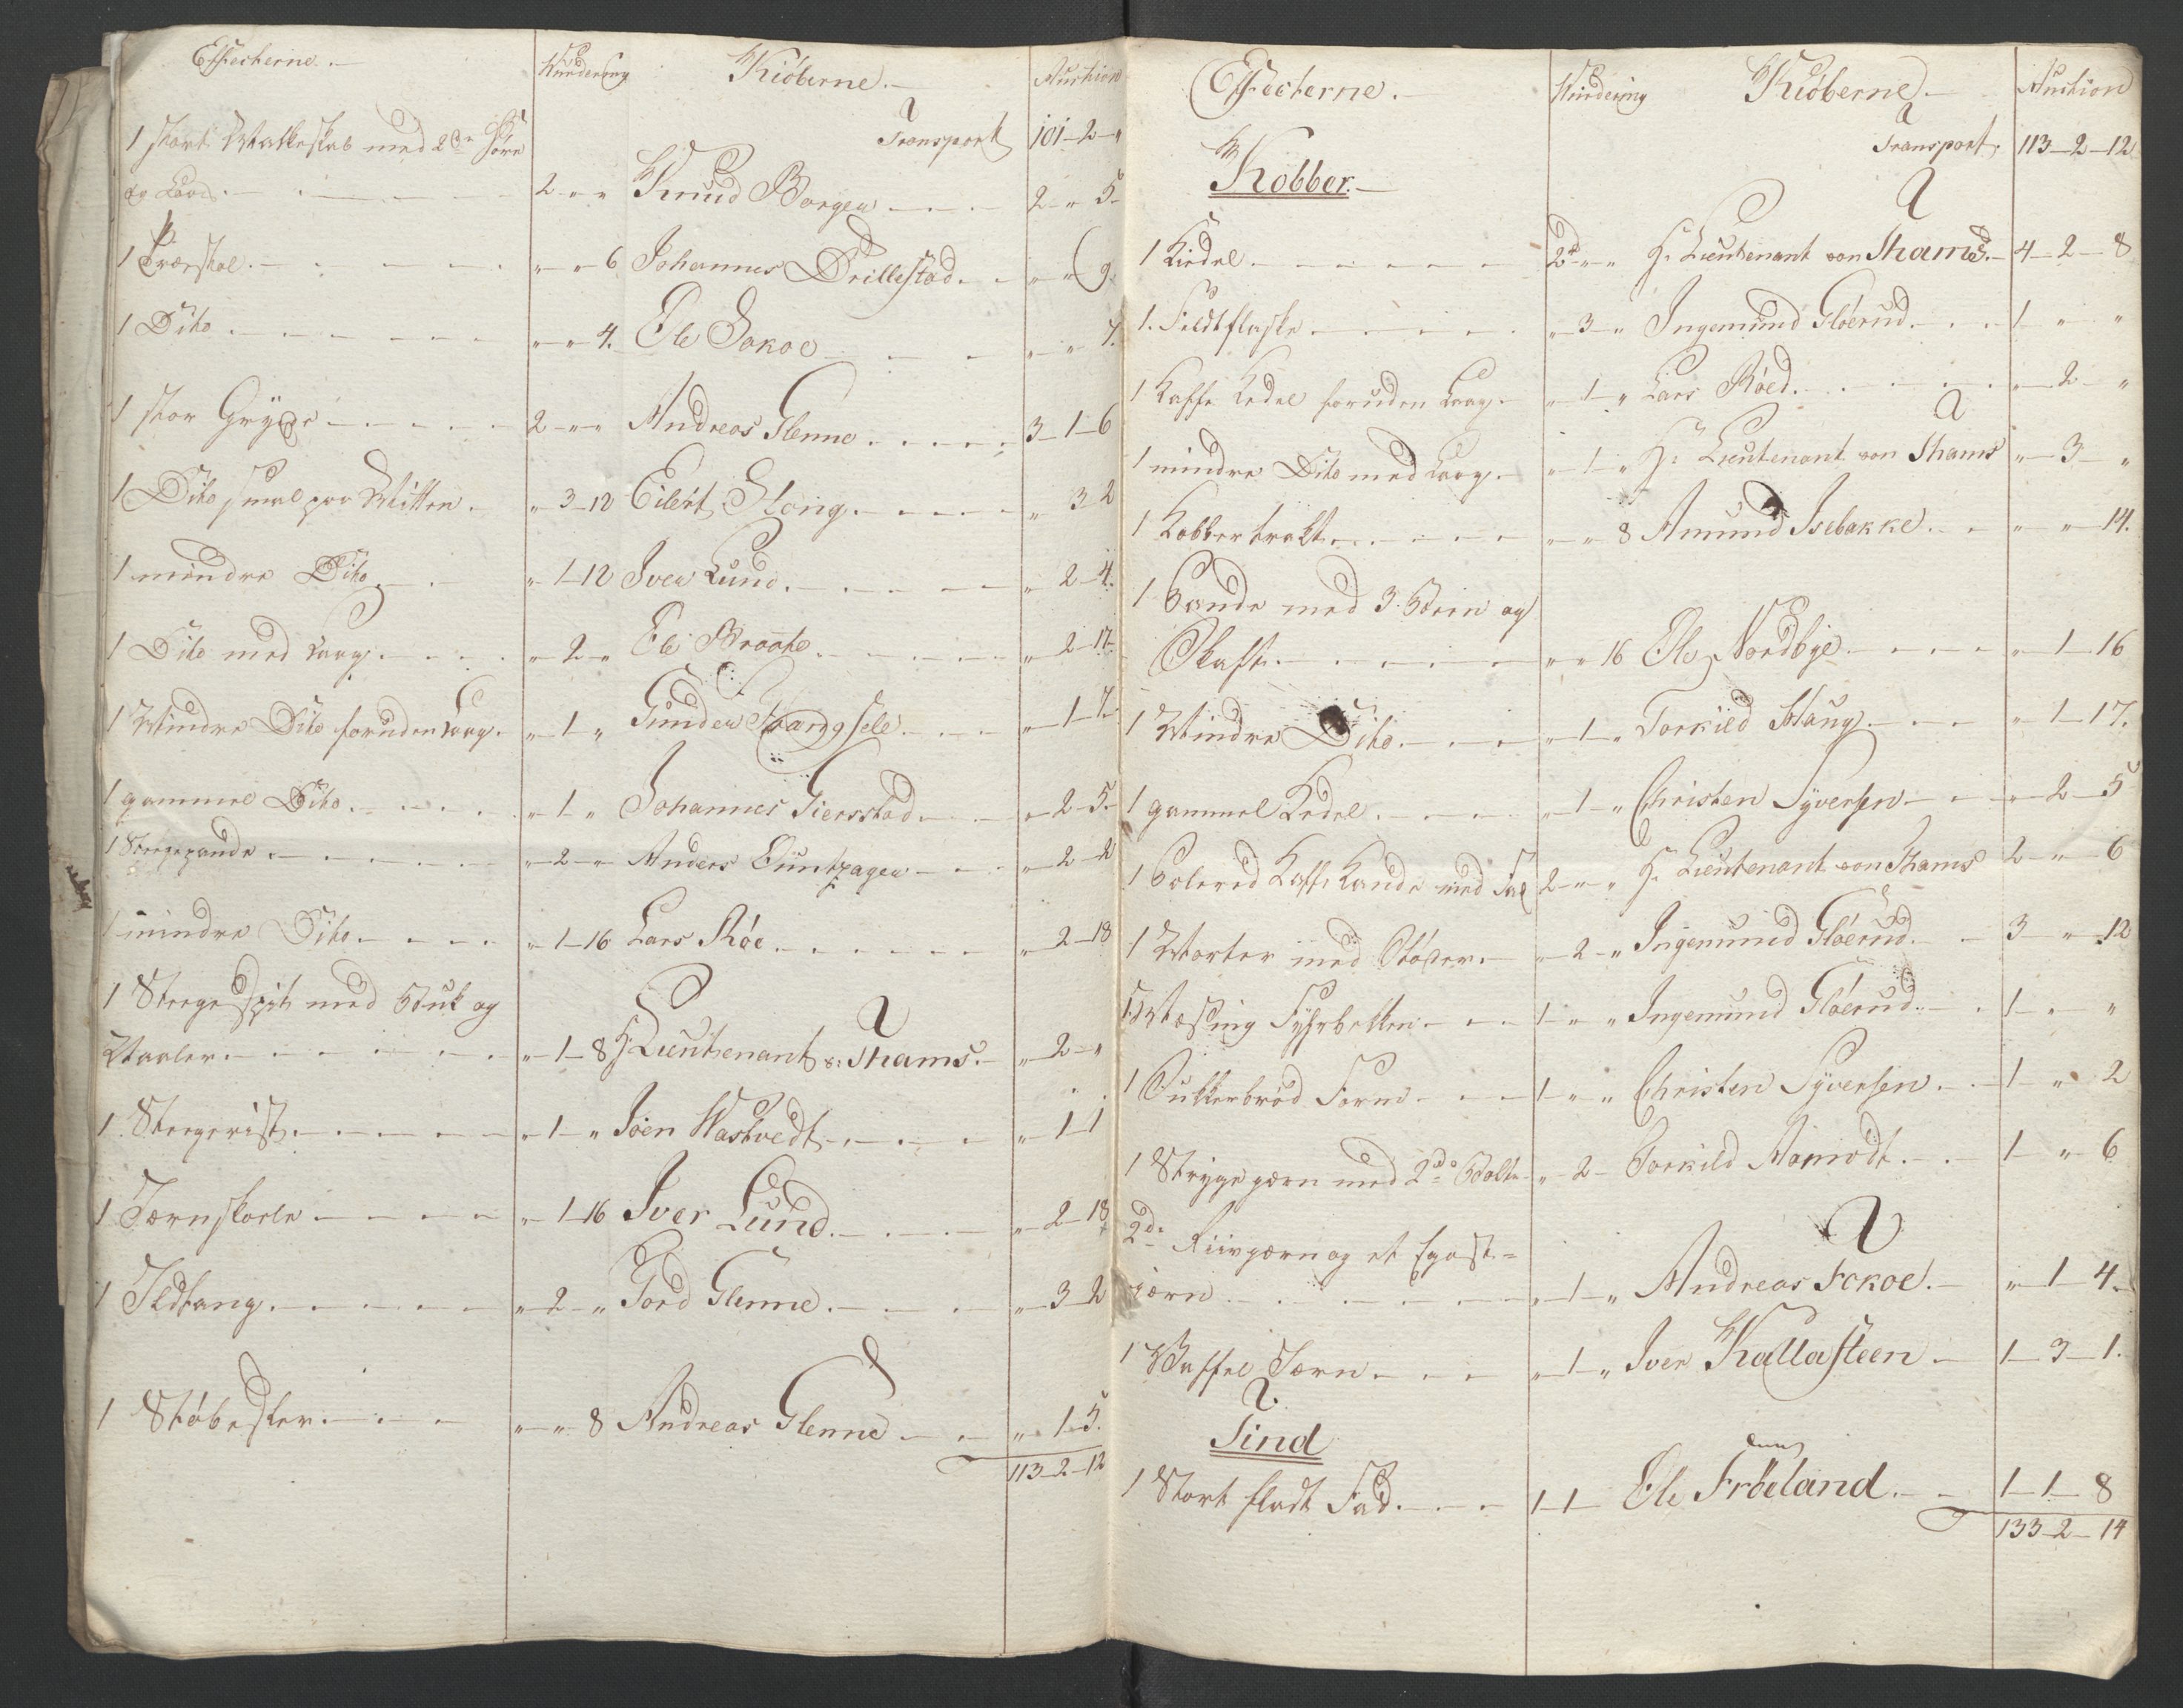 Effecterne.— Wurdering Kiöberne.— Auction
Transport 101-2-"
1 stort Matskab med 2de Döre
og Laase.— 2-"-" Knud Borgen 2-"-5
1 Træstoel.— "-"-6 Johannes Drillestad "-"-9
1 Dito "-"-4. Ole Jokoe "-"-7.
1 stor Gryde 2-"-" Andreas Glenne 3-1-6
1 Dito smal paa Mitten. "-3-12 Eilert Stang. "-3-2
1 mindre Dito "-1-12 Iver Lund. "-2-4.
1 Dito med Laag. "-2-" Ole Braate "-2-17.
1 Mindre Dito foruden Laag. "-1-" Gunder "-1-7
1 gammel Dito. "-1-" Johannes Giersstad "-2-5.
1 Stegepande "-2-" Anders "-2-2
1 mindre Dito. "-1-16 Lars Röe "-2-18
1 Stegespit med Buk og
"-1-8 Hr Lieutenant v: Thams. "-2-"
1. Stegerist. "-1-" Joen Wastvedt "-1-1
1 Jernskoele "-1-16 Iver Lund. "-2-18
1 Ildtang. "-2-" Tord Glenne. "-3-2
1 Støbeskee "-"-8 Andreas Glenne "-1-5.
113-2-12
Effecterne.— Wurdering Kiöberne.— Auction
Transport. 113-2-12
Kobber.—
1 Kiedel 2-"-" Hr Lieutenant von Thams. 4-2-8
1. Feldtflaske "-3-" Ingemund Glöerud. 1-"-"
1 Kaffe Kedel foruden Laag. "-1-" Lars Röed. "-2-"
1 mindre Dito med Laag. "-1-" Hr Lieutenant von Thams "-3-"
1 Kobbertrakt "-"-8 Amund Isebakke. "-"-14.
1 Pande med 3 Been og
Skaft. "-"-16 Ole Nordbye. "-1-16
1 Mindre Dito. "-1-" Torkild Houg. "-1-17.
1 gammel Kedel. "-1-" Christen Syversen "-2-5
1 Polered Kaffe Kande med Fad 2-"-" Hr Lieutenant von Thams 2-"-6
1 Morter med Stöder. "-2-" Ingemund Glöerud. 3-"-12
1 Mesing Fyhrbekken 1-"-" Ingemund Glöerud. 1-"-"
1 Sukkerbröd Form 1-"-" Christen Syversen. 1-"-2
1 Strygejærn med 2de Bolte "-2- Torkild Aamodt. 1-"-6
2de Riivjærn og et
jærn "-1-" Andreas Fokoe. "-1-4.
1 Waffel Jærn. "-1-" Iver Kallasteen 1-3-1.
Tind
1 Stort fladt Fad. 1-1- Ole Fröeland. 1-1-8
133-2-14